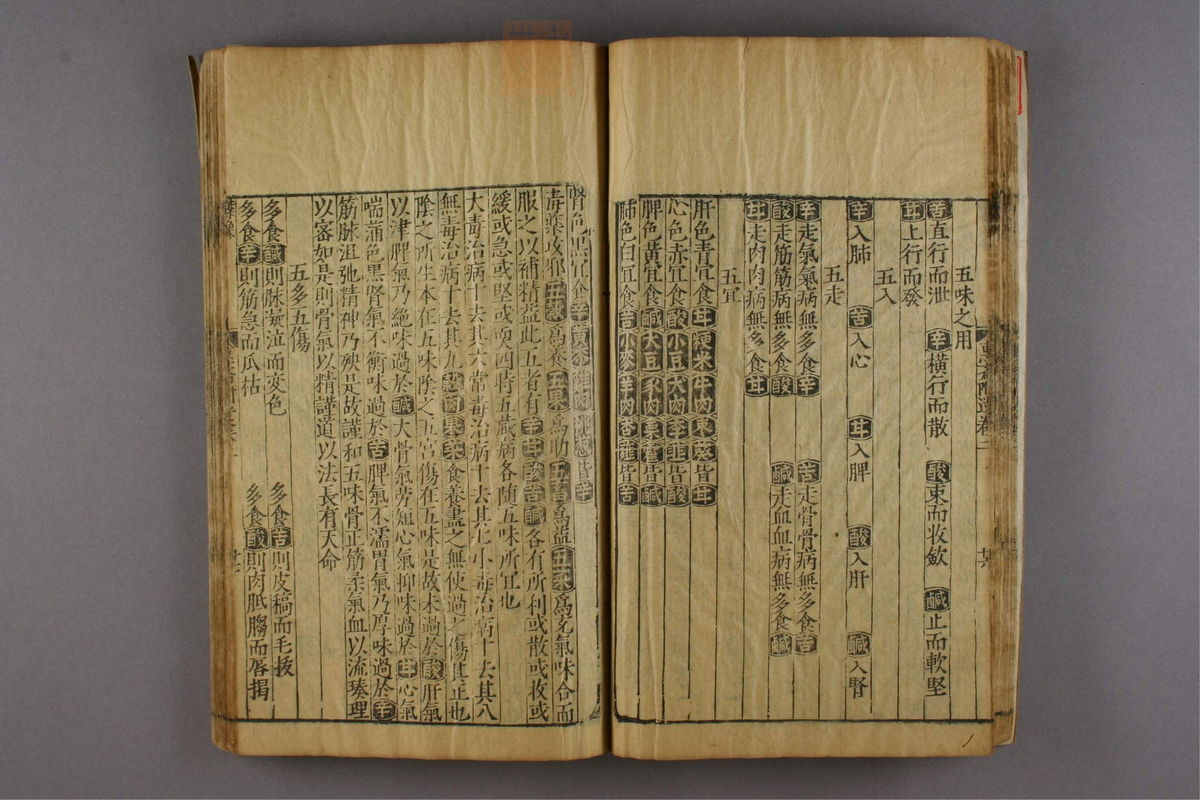 五味之用
苦直行而泄 辛橫行而散 酸束而收斂 鹹止而軟堅
甘上行而發
五入
辛入肺 苦入心 甘入脾 酸入肝 鹹入腎
五走
辛走氣氣病無多食辛 苦走骨骨病無多食苦
酸走筋筋病無多食酸 鹹走血血病無多食鹹
甘走肉肉病無多食甘
五宜
肝色青宜食甘粳米牛肉棗葵皆甘
心色赤宜食酸小豆犬肉李韭皆酸
脾色黃宜食鹹大豆豕肉栗藿皆鹹
肺色白宜食苦小麥羊肉杏薤皆苦
腎色黑宜食辛黃黍雞肉桃葱皆辛
毒藥攻邪五穀爲養五果爲助五畜爲益五菜爲充氣味合而
服之以補精益此五者有辛甘酸苦鹹各有所利或散或收或
緩或急或堅或耎四時五藏病各随五味所宜也
大毒治病十去其六常毒治病十去其七小毒治病十去其八
無毒治病十去其九穀肉果菜食養盡之無使過之傷其正也
陰之所生本在五味陰之五宮傷在五味是故味過於酸肝氣
以津脾氣乃絶味過於鹹大骨氣勞短心氣抑味過於甘心氣
喘滿色黑腎氣不衡味過於苦脾氣不濡胃氣乃厚味過於辛
筋脉沮弛精神乃殃是故謹和五味骨正筋柔氣血以流湊理
以密如是則骨氣以精謹道以法長有天命
五多五傷
多食鹹則脉凝泣而变色 多食苦則皮稿而毛拔
多食辛則筋急而爪枯 多食酸則肉胝䐢而唇揭